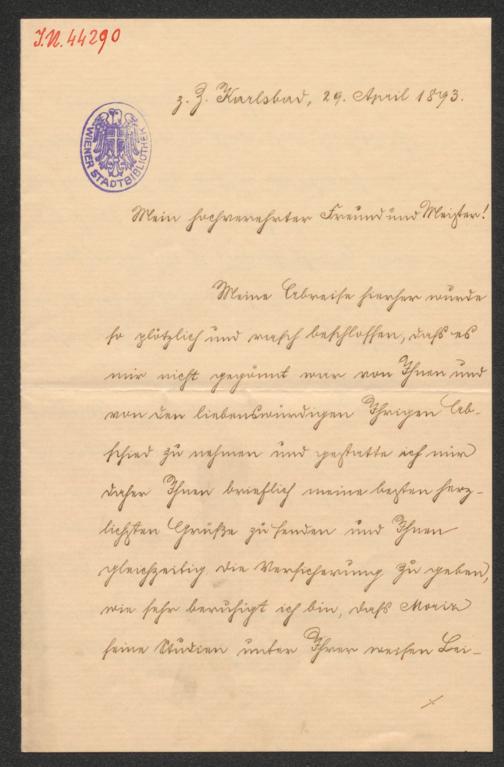 I.N. 44290
z. Z. Karlsbad, 29. April 1893.
WIENER STADTBIBLIOTHEK
Mein hochverehrter Freund und Meister!
Meine Abreise hierher wurde
so plötzlich und rasch beschlossen, daß es
mir nicht gegönnt war von Ihnen und
von den liebenswürdigen Ihrigen Ab-
schied zu nehmen und gestatte ich mir
daher Ihnen brieflich meine besten herz-
lichsten Grüße zu senden und Ihnen
gleichzeitig die Versicherung zu geben,
wie sehr beruhigt ich bin, daß Moriz
seine Studien unter Ihrer weisen Lei-